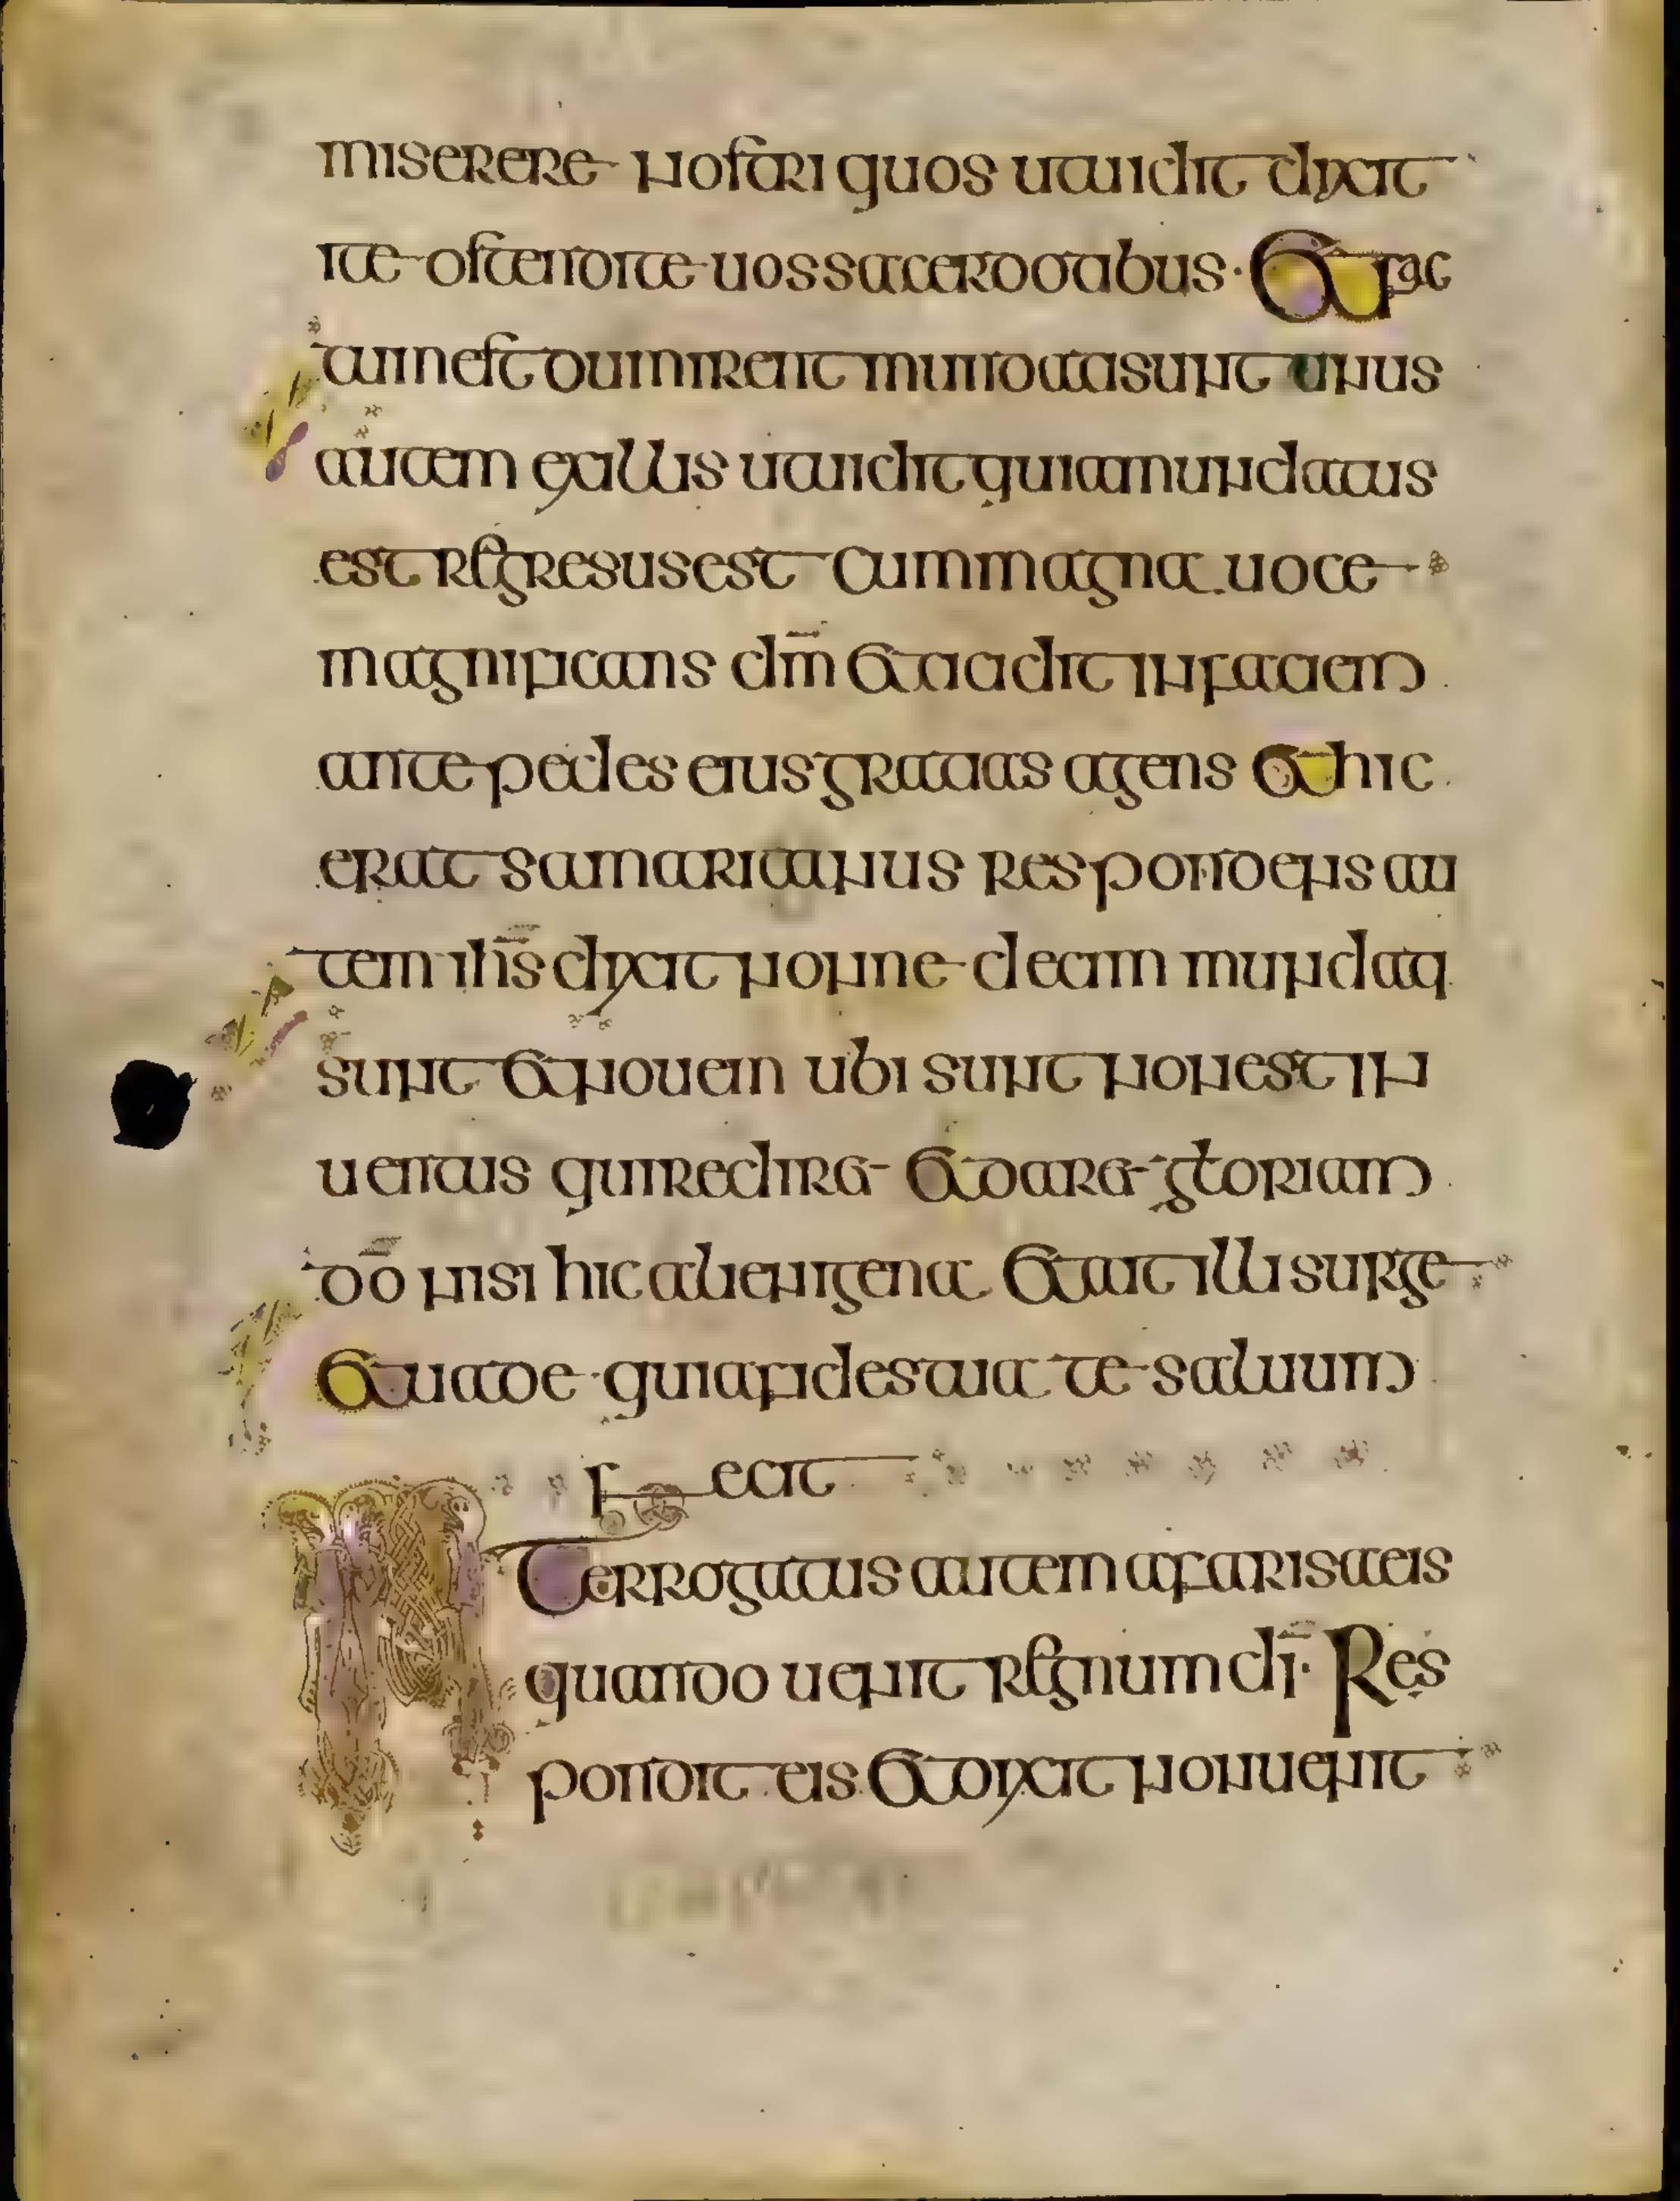 miserere nostri quos ut uidit dixit
ite ostendite uos sacerdotibus · Et fac
tum est dum irent mundati sunt unus
autem ex illis ut uidit quia mundatus
est regresus est cum magna uoce
magnificans dm̄ et cicidit in faciem
ante pedes eius gratias agens et hic
erat samaritanus respondens au
tem ih̄s dixit nonne decim mundati
sunt et nouem ubi sunt non est in
uentus qui rediret et daret gloriam
dō nisi hic alienigena et ait illi surge
et uade · quia fides tua te saluum
fecit
INTerrogatus autem a farisaeis
quando uenit regnum dī · Res
pondit eis et dixit non uenit